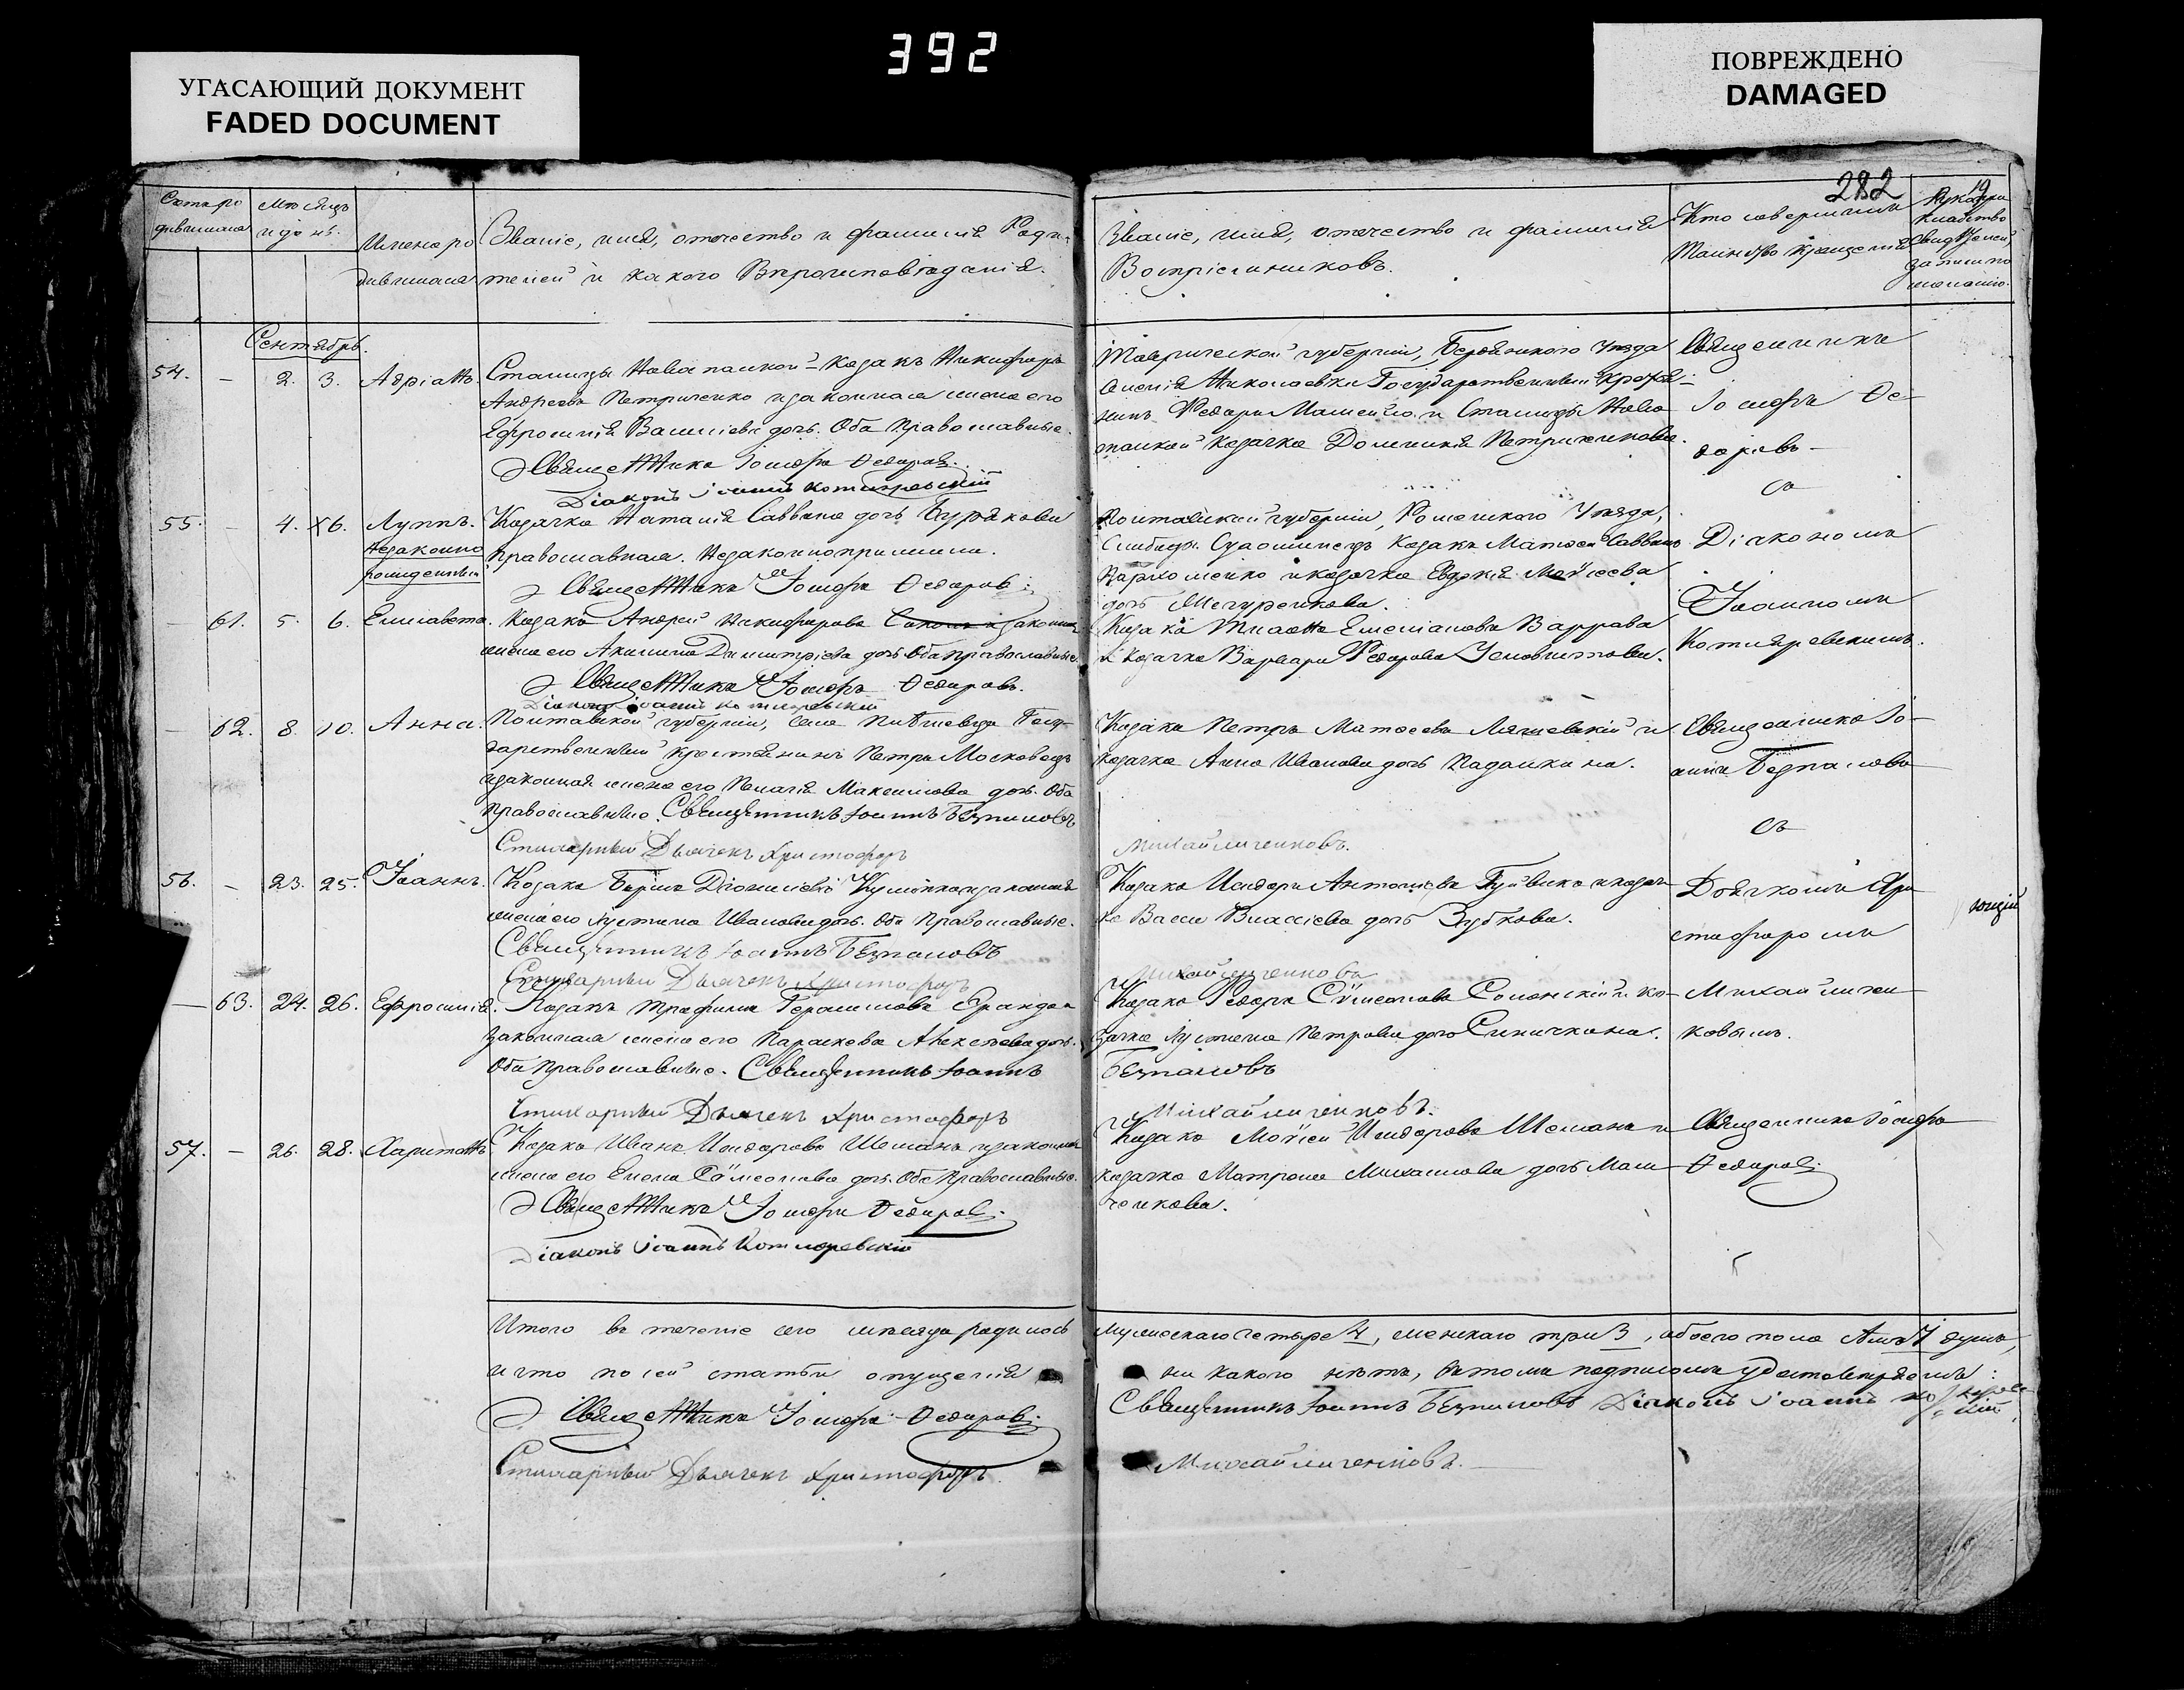 392
УГАСАЮЩИЙ ДОКУМЕНТ
FADED DOCUMENT
ПОВРЕЖДЕНО
DAMAGED
282
19
Мѣсяцъ
и день.
Имена ро
дившихся
Званіе, имя, отечество и фамилія Роди-
телей и какого Вѣроисповѣданія.
Званіе, имя, отечество и фамилія
Воспріемниковъ.
Кто совершилъ
Таинство крещенія
Сентябрь.
54. — 2. 3. Адріанъ.
Станицы Новоспаской Козакъ Никифоръ
Андреевъ Петриченко и законная жена его
Ефросинія Васильева дочь. Оба Православные.
Священникъ Іосифъ Ѳедоровъ.
Діаконъ Іоаннъ Котляревскій
Таврической губерніи, Бердянского Уѣзда
Селенія Николаевки Государственный Крестья-
нинъ Федоръ и Станицы Ново
спаской Козачка Домникія Петриченкова.
Священникъ
Іосифъ Ѳе-
доровъ —
съ
55. — 4. 6. Луппъ.
Незаконно
рожденный
Козачка Наталія Саввина дочь Бурякова
православная. Незаконноприжили.
Священникъ Іосифъ Ѳедоровъ
Полтавской губерніи, Роменского Уѣзда,
Козакъ Матвей Саввинъ
Пархоменко и козачка Евдокія Мойсеева
дочь
Діакономъ
Іоанномъ
Котляревскимъ.
— 61. 5. 6. Елисавета.
Козакъ Андрей Никифоровъ и законная
жена его Акилина Димитріева дочь. Оба православные.
Священникъ Іосифъ Ѳедоровъ.
Діаконъ Іоаннъ Котляревскій
Козакъ ЕмеліановъВаррава
и Козачка Варвара Федорова
— 62. 8. 10. Анна.
Полтавской губерніи, села Госу-
дарственный крестьянинъ Петръ Московецъ
и законная жена его Пелагія Максимова дочь. Оба
православные. Священникъ Іоаннъ Безпаловъ
Стихарный Дьячекъ Христофоръ
Козакъ Петръ Матвеевъ Ляшевскій и
козачка Анна Иванова дочь Падалкина.
Михайличенковъ.
Священникъ Іо-
аннъ Безпаловъ
съ
56. — 23. 25. Іоаннъ.
Козакъ Борисъ Діонисіевъ и законная
жена его Іустина Иванова дочь. Оба Православные.
Священникъ Іоаннъ Безпаловъ
Стихарный Дьячекъ Христофоръ
Козакъ Исидоръ Антоніевъ и козач-
ка Васса Власіева дочь Зубкова.
Михайличенковъ
Дьячкомъ Хри
стофоромъ
ющій
— 63. 24. 26. Ефросинія.
Козакъ Трофимъ Герасимовъ
законная жена его Параскева Алексѣева дочь.
Оба православные. Священникъ Іоаннъ
Стихарный Дьячекъ Христофоръ
Козакъ Федоръ Сѵмеоновъ Солонскій и ко-
зачка Іустина Петрова дочь Синичкина.
Безпаловъ
Михайличенковъ.
Михайличен
ковымъ.
57. — 26. 28. Харитонъ
Козакъ Иванъ Исидоровъ Шеманъ и законная
жена его Елена Сѵмеонова дочь. Оба Православные.
Священникъ Іосифъ Ѳедоровъ.
Діаконъ Іоаннъ Котляревскій
Козакъ Мойсей Исидоровъ Шеманъ и
козачка Матрона Михаилова дочь Маш-
ченкова.
Священникъ Іосифъ
Ѳедоровъ.
Итого въ теченіе сего мѣсяца родилось
и что по сей статьи опущенія
Священникъ Іосифъ Ѳедоровъ.
Стихарный Дьячекъ Христофоръ
мужескаго четыре 4, женскаго три 3, обоего пола 7 душъ,
ни какого нѣтъ, въ томъ подписомъ удостовѣряемъ:
Священникъ Іоаннъ Безпаловъ Діаконъ Іоаннъ
Михайличенковъ.